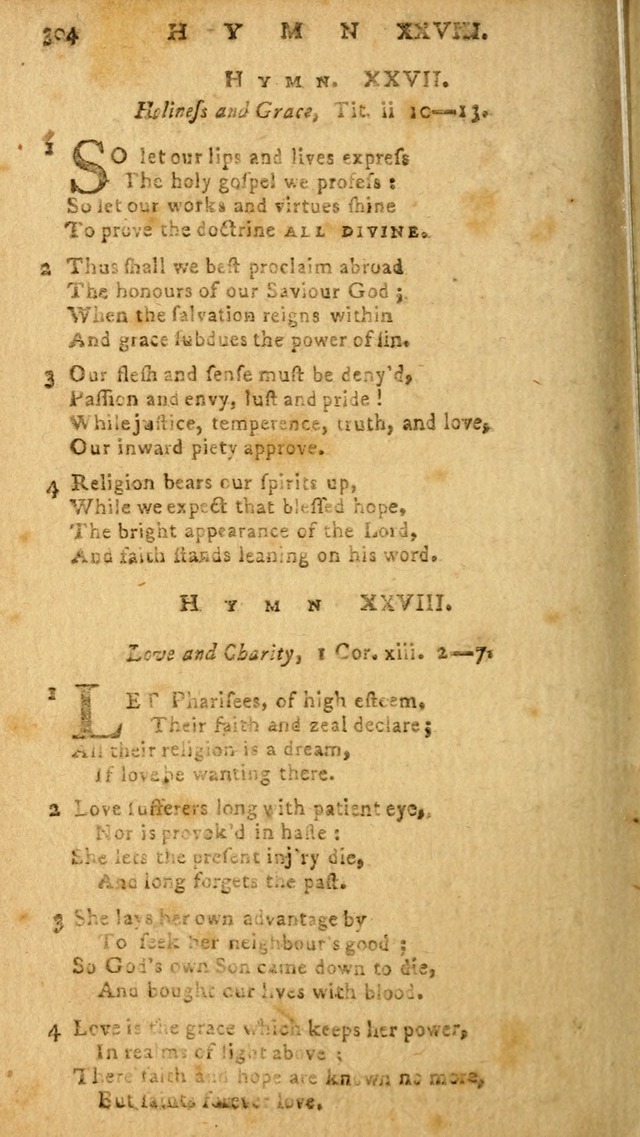 304 HYMN XXVIII.
HYMN. XXVII.
Holineſs and Grace, Tit. ii 10—13.
1 SO let our lips and lives expreſs
The holy goſpel we profeſs :
So let our works and virtues ſhine
To prove the doctrine ALL DIVINE.
2 Thus ſhall we beſt proclaim abroad
The honours of our Saviour God ;
When the ſalvation reigns within
And grace ſubdues the power of ſin.
3 Our fleſh and ſenſe muſt be deny'd,
Paſſion and envy, luſt and pride !
While juſtice, temperence, truth, and love,
Our inward piety approve.
4 Religion bears our ſpirits up,
While we expect that bleſſed hope,
The bright appearance of the Lord,
And faith ſtands leaning on his word.
HYMN XXVIII.
Love and Charity, 1 Cor. xiii. 2—7.
1 LET Phariſees, of high eſteem,
Their faith and zeal declare ;
All their religion is a dream,
If love be wanting there.
2 Love ſufferers long with patient eye,
Nor is provok'd in haſte :
She lets the preſent inj'ry die,
And long forgets the paſt.
3 She lays her own advantage by
To ſeek her neighbour's good ;
So God's own Son came down to die,
And bought our lives with blood.
4 Love is the grace which keeps her power,
In realms of light above ;
There faith and hope are known no more,
But ſaints forever love.